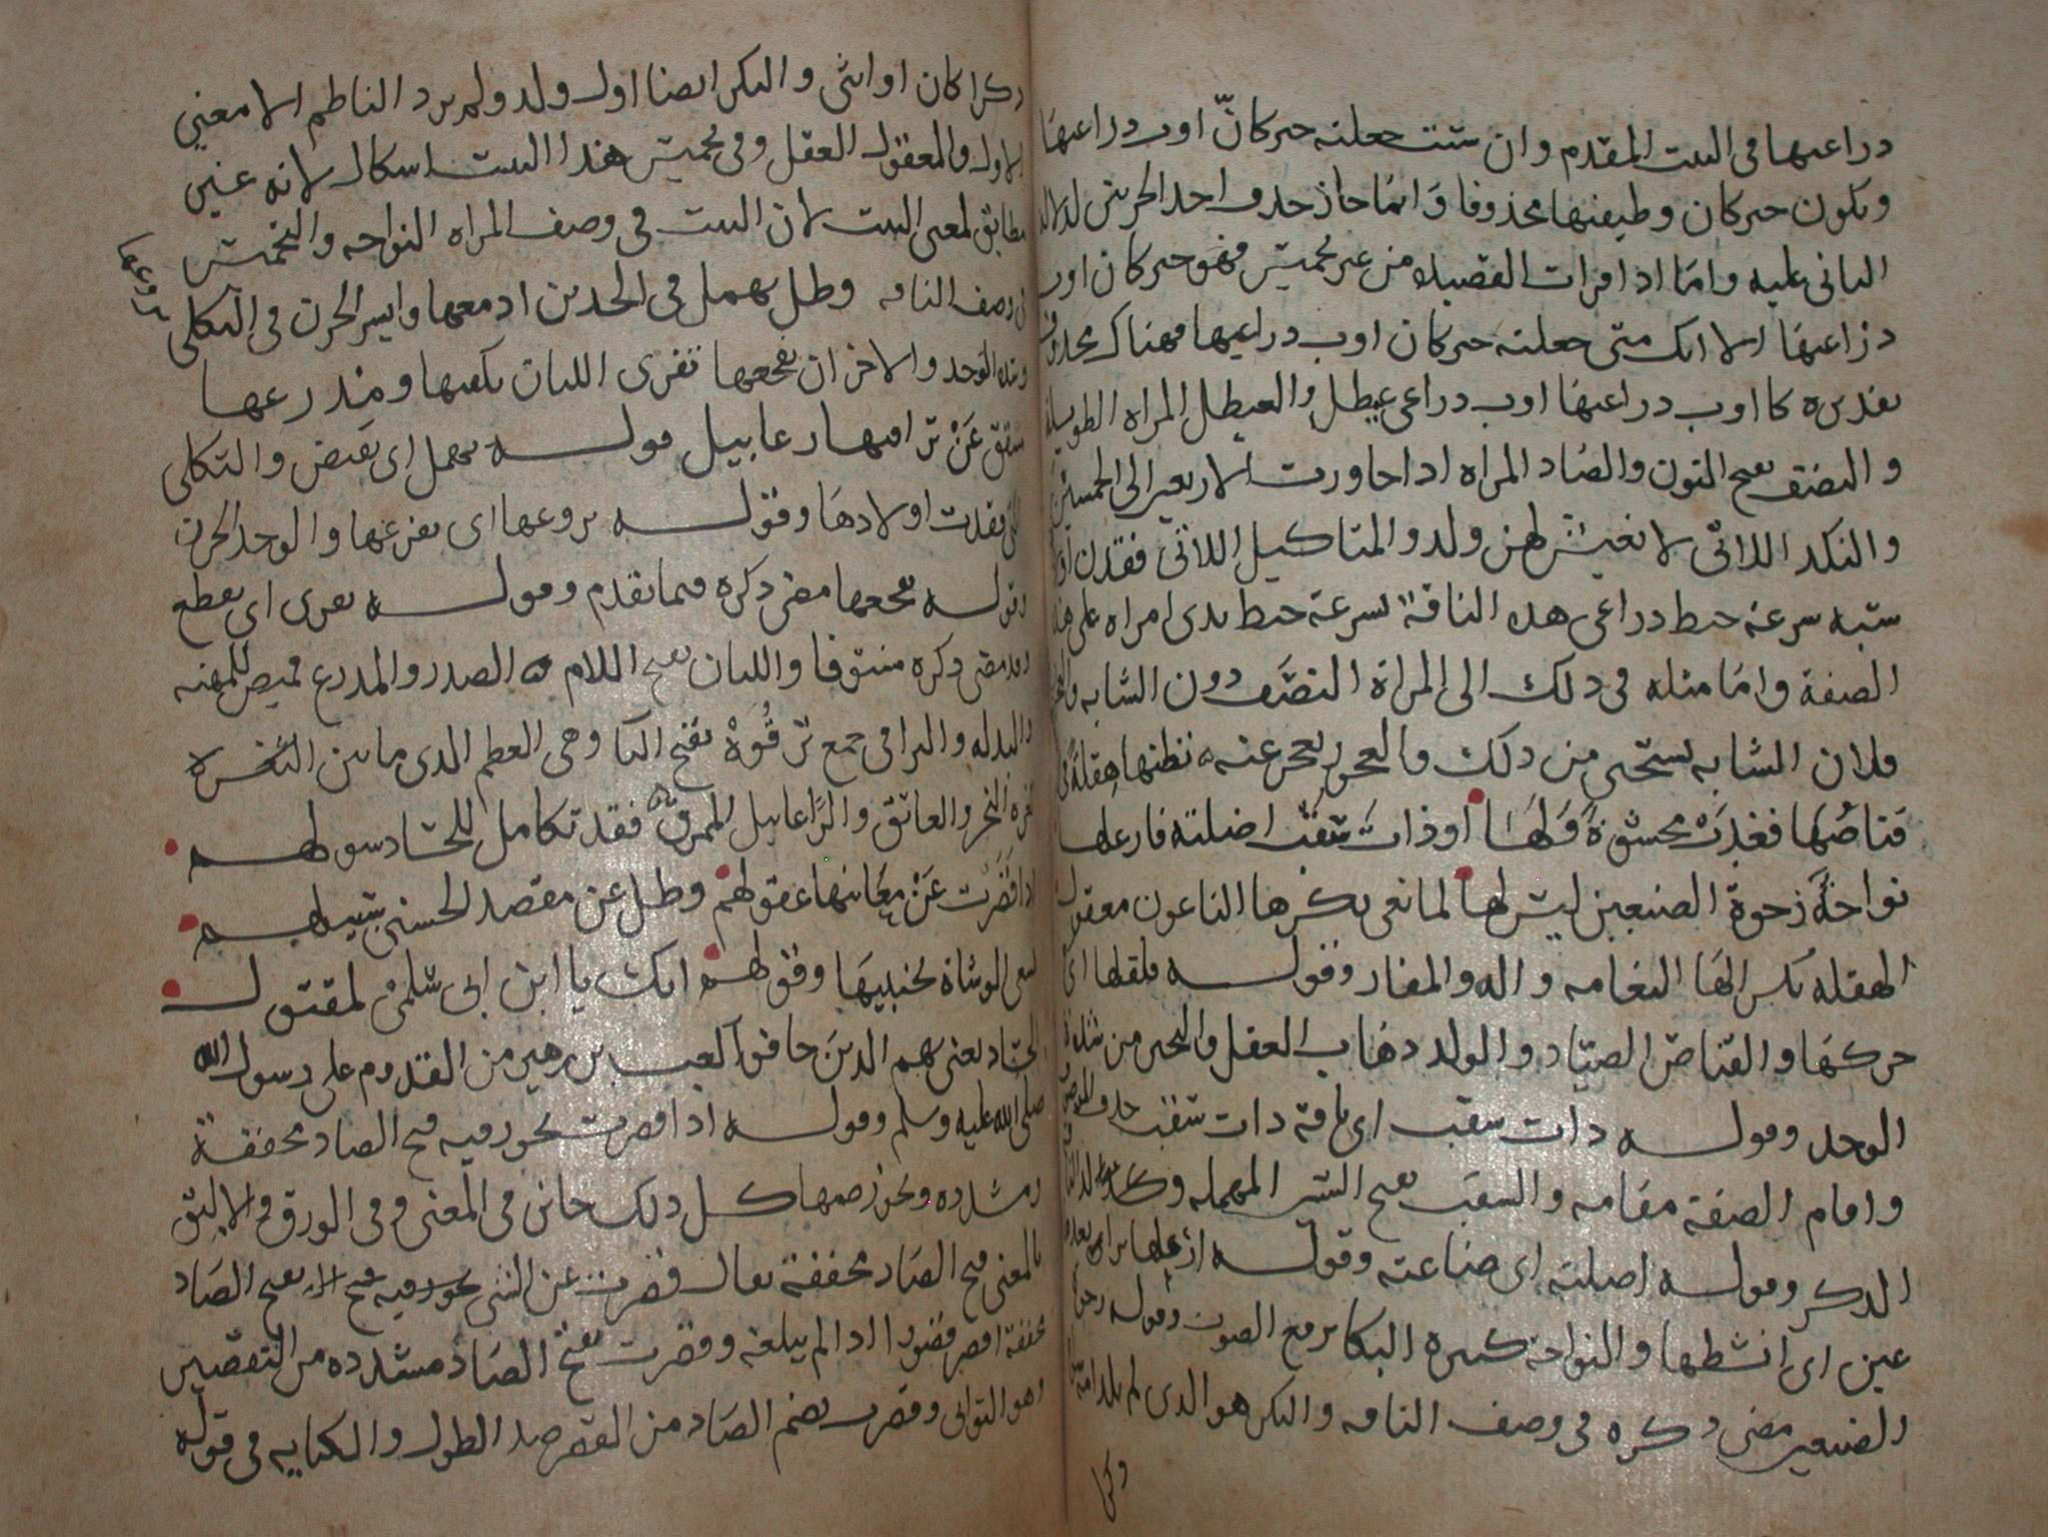 دراعيها في البيت المقدم وان شئت جعلته خبر كانّ اوب دراعيها
ويكون خبر كان وظيفتها محذوفا وانما جاز حذف احد الخبرين لدلالة
الثاني عليه واما اذا قرات القصيدة من غير تخميس فهو خبر كان اوب
ذراعيها الا انك متى جعلته خبر كان اوب دراعيها فهناك محذوف
تقديره كا اوب دراعيها اوب دراعي عيطل والعيطل المراه الطويلة
والنصف بفتح النون والصاد المراه اذا جاوزت الاربعين الى الخمسين
والنكد اللاتي لا يعيش لهن ولد والمثاكيل اللاتي فقدن
شبه سرعة خبط دراعي هذه الناقة بسرعة خبط يدي امراه على هذه
الصفة واما مثله في ذلك الى المراة النصَف دون الشابه
فلان الشابه تستحي من ذلك والعجوز تعجز عنه تظنها هقلة
قناصُها فغدت محشوة وَلَهَا او ذات سقب اضلته فارعلها
نواحَةٌ رَخوة الضبعين ليس لها لما نعى بكرها الناعون معقول
الهقله بكسر الها النعامه واله والمغار وقوله فلقلها اي
حركها والقناص الصياد والوله ذهاب العقل والتحير من شدة
الوجد وقوله دات سقب اي ناقة دات سقب حذف الموصوف
واقام الصفة مقامه والسقب بفتح السين المهمله
الذكر وقوله اضلته اي ضاعته وقوله ارعلها
عين اي انشطها والنواحه كثيرة البكا برفع الصوت وقوله رخوة
الضبعين مضى ذكره في وصف الناقه والبكر هو الذي لم تلد امه
وكرا
ذكرا كان او انثى والبكر ايضا اول ولد ولم يرد الناظم الا معنى
الاول والمعقول العقل وفي تخميس هذا البيت اشكال لانه غير
مطابق لمعنى البيت لان البيت في وصف المراه النواحه والتخميس
في وصف الناقه وظل يهمل في الخدين ادمعها وايسر الحزن في الثكلى
يروعها
وشدة الوجد والاحزان تفجعها تفري اللبان بكفيها ومدرعها
مشقق عَنْ تراقيها رعابيل قوله يهمل اي يفيض والثكلى
التي فقدت اولادها وقوله يروعها اي يفزعها والوجد الحزن
وقوله تفجعها مضى ذكره فيما تقدم وقوله تفري اي تقطع
وقد مضى ذكره مستوفا واللبان بفتح اللام الصدر والمدرع قميص للمهنه
والبدله والتراقي جمع ترقُوة بفتح التا وهي العظم الذي ما بين الثغرة
ثغرة النحر والعاتق والرَّعابيل الممزق فقد تكامل للحساد سولهم
اذا قصَرت عَنْ معَانيها عقولهم وظل عن مقصد الحسنى سبيلهم
تسعى الوشاة بجنبيها وقولهم انك يا ابن ابي سُلمى لمقتول
الحساد يعني بهم الذين خافوا كعب بن زهير من القدوم على رسول الله
صلى الله عليه وسلم وقوله اذا قصرت يجوز فيه فتح الصاد مخففة
ومشدده ويجوز ضمها كل ذلك جائز في المعنى وفي الورق والاليق
بالمعنى فتح الصاد مخففة يقال قصرت عن الشي بفتح الصاد
مخففة اقصر قصورا اذا لم يبلغه وقصرت بفتح الصاد مشدده من التقصير
وهو التواني وقصرت بضم الصاد من القصر ضد الطول والكنايه في قوله